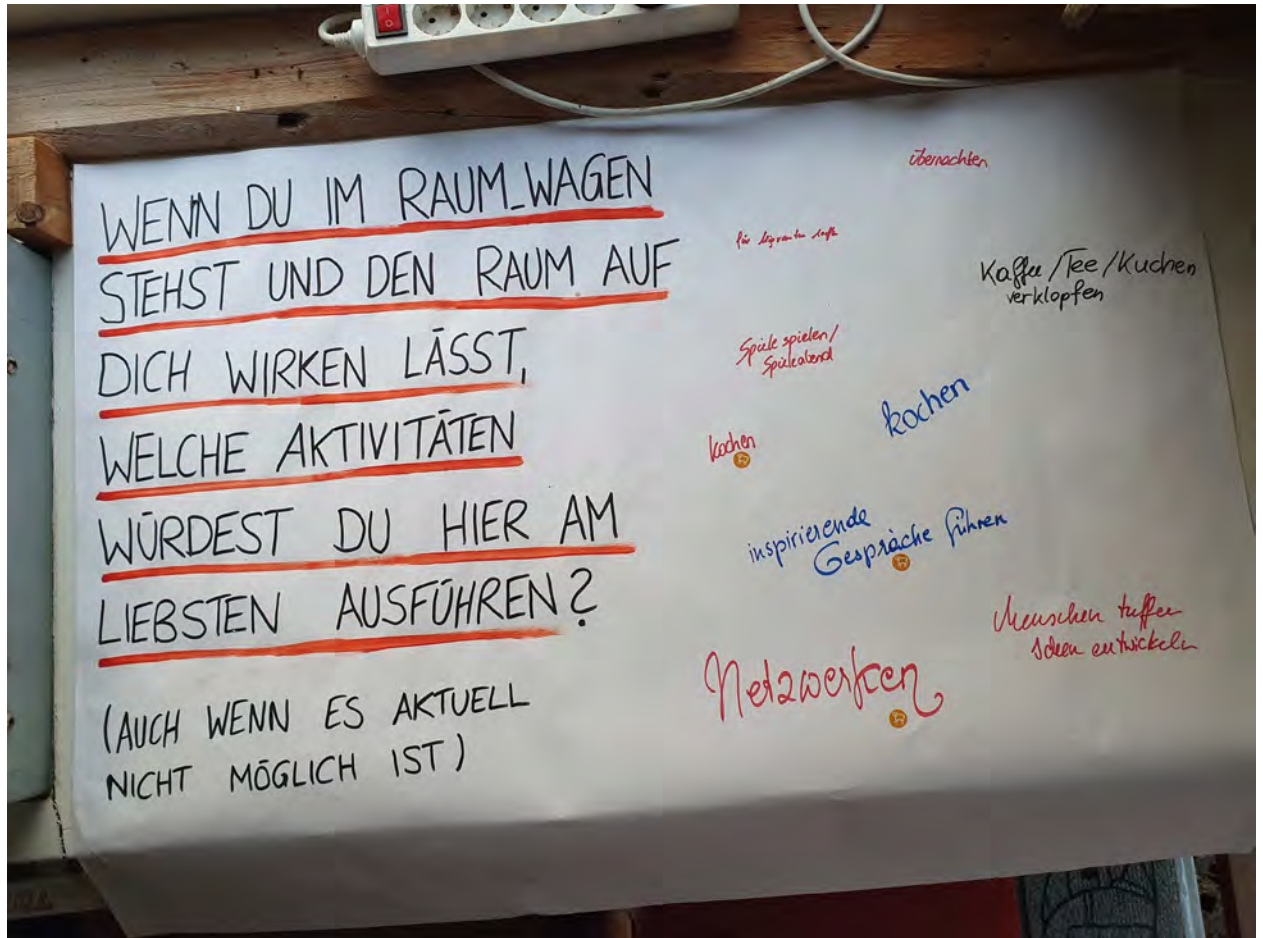 WENN DU IM RAUM_WAGEN
STEHST UND DEN RAUM AUF
DICH WIRKEN LÄSST,
WELCHE AKTIVITÄTEN
WÜRDEST DU HIER AM
LIEBSTEN AUSFÜHREN?
(AUCH WENN ES AKTUELL
NICHT MÖGLICH IST)
übernachten
für
Kaffee/Tee/Kuchen
verklopfen
Spiele spielen/
Spieleabend
kochen
kochen
inspirierende
Gespräche führen
Menschen treffen
Ideen entwickeln
Netzwerken